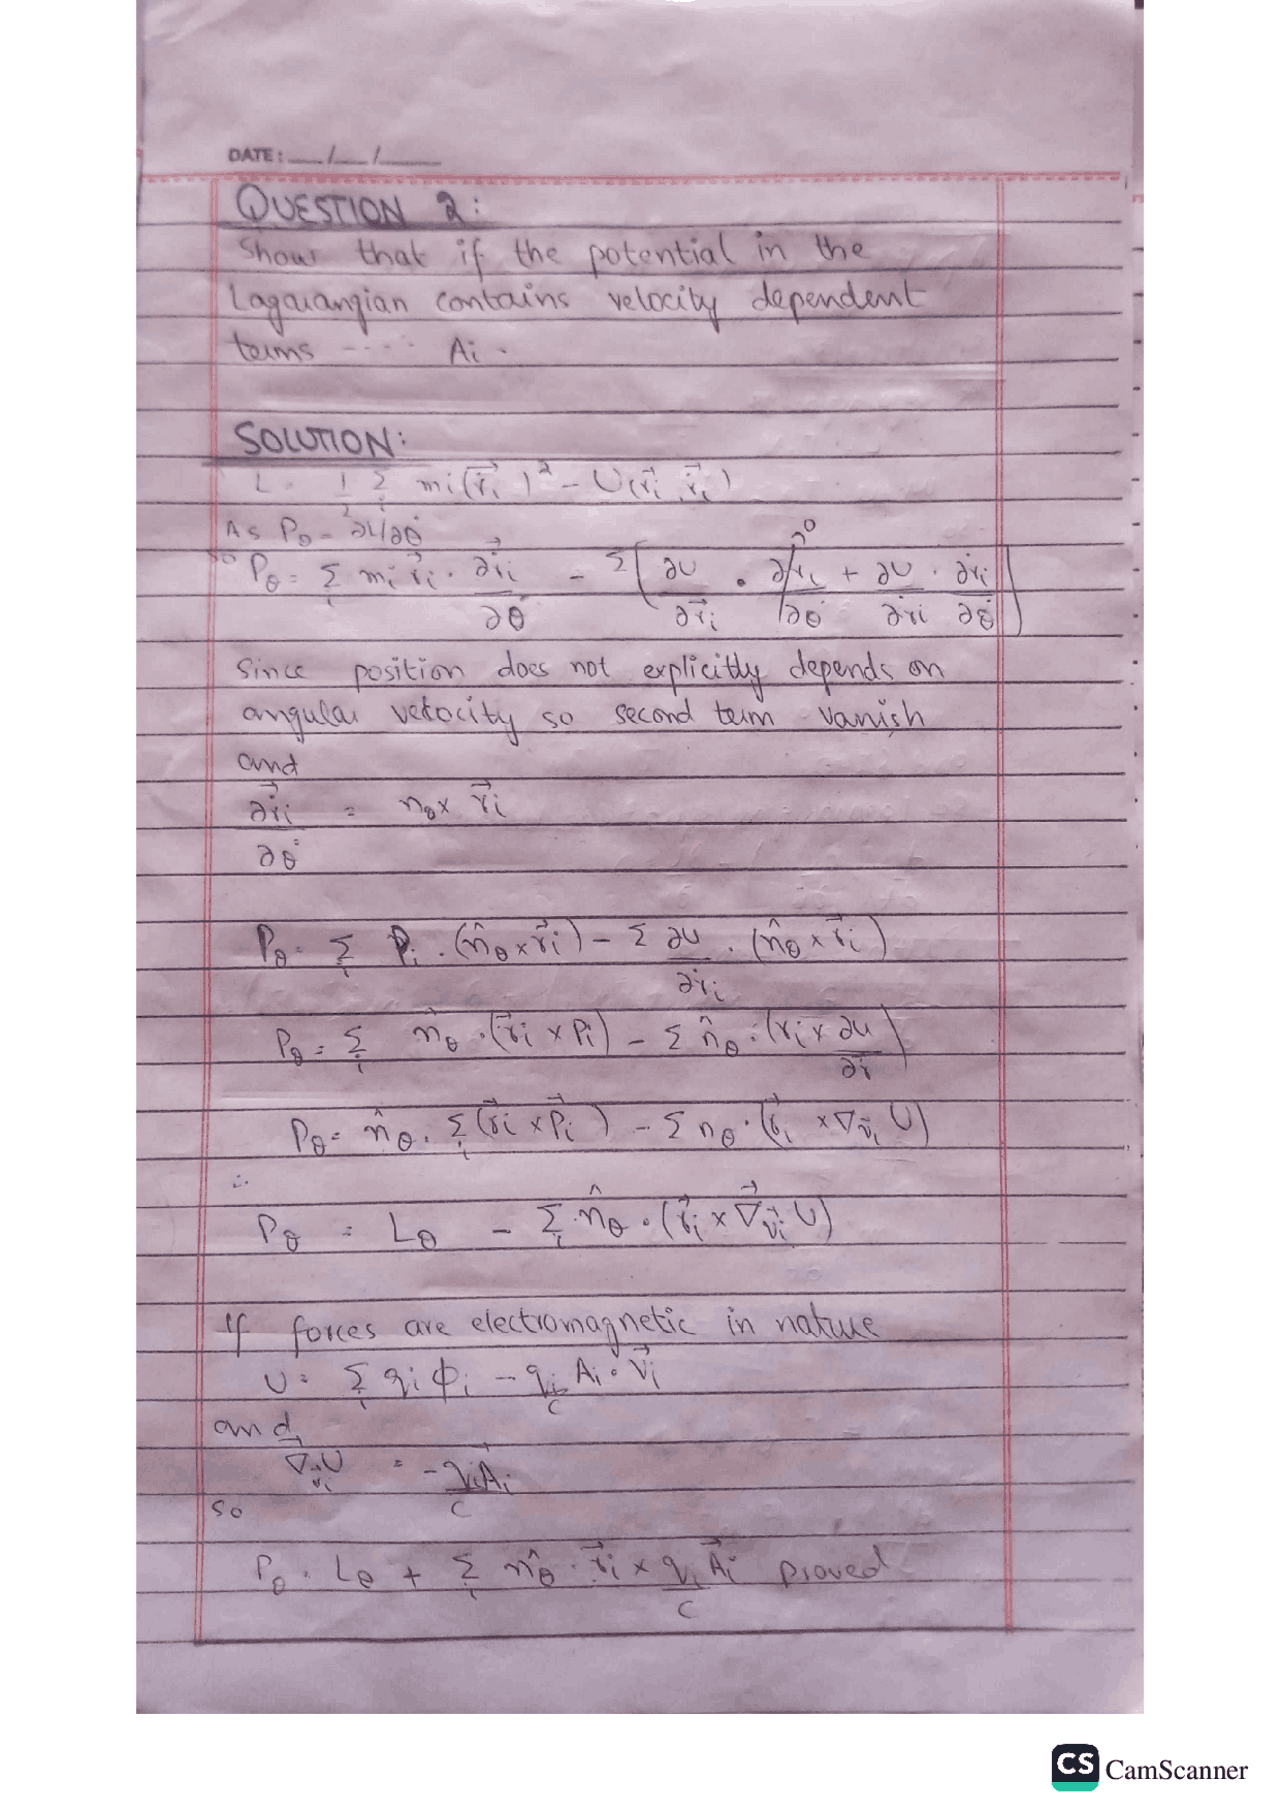 DATE: __/__/____
QUESTION 2:
Show that if the potential in the
Lagarangian contains velocity dependent
terms ---- Ai.
SOLUTION:
L = 1/2 Σ_i mi(ṙ⃗i)² - U(r⃗i, ṙ⃗i)
As Pθ = ∂L/∂θ̇
so Pθ = Σ_i mi ṙ⃗i · ∂ṙ⃗i/∂θ̇ - Σ[∂U/∂r⃗i · ∂ri/∂θ̇ →0 + ∂U/∂ṙi · ∂ṙi/∂θ̇]
Since position does not explicitly depends on
angular velocity so second term vanish
and
∂ṙ⃗i/∂θ̇ = nθ × r⃗i
Pθ = Σ_i Pi · (n̂θ × r⃗i) - Σ ∂U/∂ṙi · (n̂θ × r⃗i)
Pθ = Σ_i n̂θ · (r⃗i × Pi) - Σ n̂θ · (ri × ∂U/∂ṙ)
Pθ = n̂θ · Σ_i (r⃗i × P⃗i) - Σ nθ · (r⃗i × ∇v⃗i U)
∴
Pθ = Lθ - Σ_i n̂θ · (r⃗i × ∇⃗v⃗i U)
If forces are electromagnetic in nature
U = Σ_i qi φi - qi/c Ai · v⃗i
and
∇⃗v⃗i U = -qi A⃗i/c
so
Pθ = Lθ + Σ_i n̂θ · r⃗i × qi/c A⃗i proved
CS CamScanner